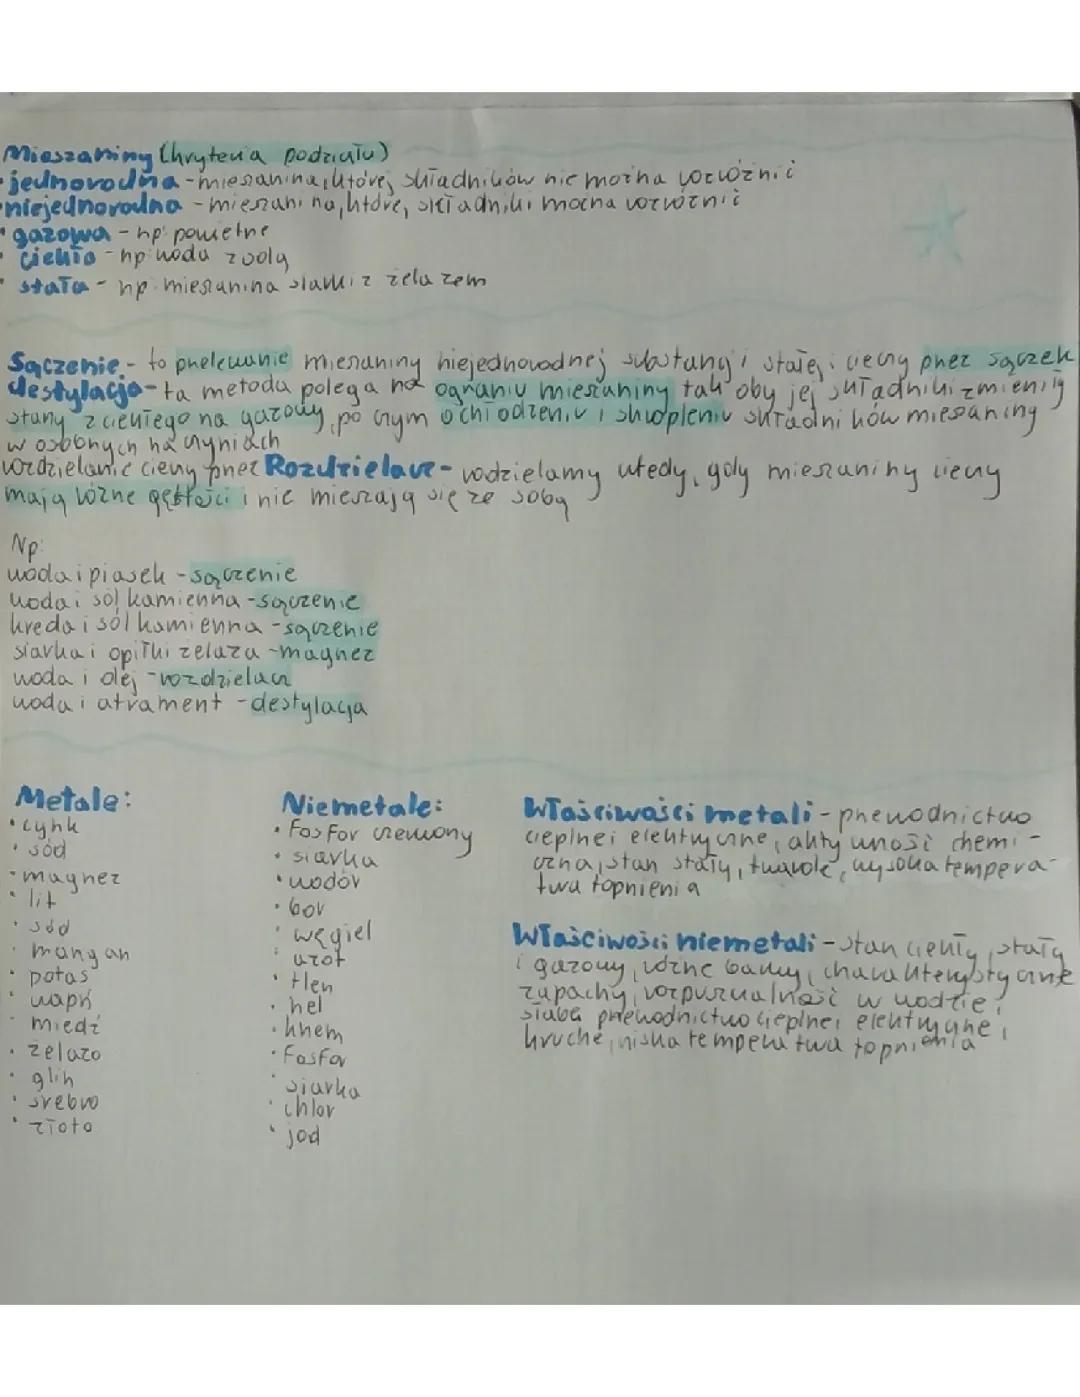 Mieszaniny (kryteria podziału)
• jednorodna - mieszanina, której składników nie można rozróżnić
• niejednorodna - mieszanina, której składniki można rozróżnić
• gazowa - np. powietrze
• ciekła - np. woda z solą
• stała - np. mieszanina siarki z żelazem
Sączenie - to przelewanie mieszaniny niejednorodnej substancji stałej i cieczy przez sączek
destylacja - ta metoda polega na ogrzaniu mieszaniny tak aby jej składniki zmieniły
stany z ciekłego na gazowy, po czym ochłodzeniu i skropleniu składników mieszaniny
w osobnych naczyniach
rozdzielanie cieczy przez Rozdzielacz - rozdzielamy wtedy, gdy mieszaniny cieczy
mają różne gęstości i nie mieszają się ze sobą
Np:
woda i piasek - sączenie
woda i sól kamienna - sączenie
kreda i sól kamienna - sączenie
siarka i opiłki żelaza - magnez
woda i olej - rozdzielacz
woda i atrament - destylacja
Metale:
• cynk
• sód
• magnez
• lit
• sód
• mangan
• potas
• wapń
• miedź
• żelazo
• glin
• srebro
• złoto
Niemetale:
• fosfor czerwony
• siarka
• wodór
• bor
• węgiel
• azot
• tlen
• hel
• krzem
• fosfor
• siarka
• chlor
• jod
Właściwości metali - przewodnictwo
cieplne i elektryczne, aktywność chemi-
czna, stan stały, twarde, wysoka tempera-
tura topnienia
Właściwości niemetali - stan ciekły, stały
i gazowy, różne barwy, charakterystyczne
zapachy, rozpuszczalność w wodzie,
słabe przewodnictwo cieplne i elektryczne,
kruche, niska temperatura topnienia